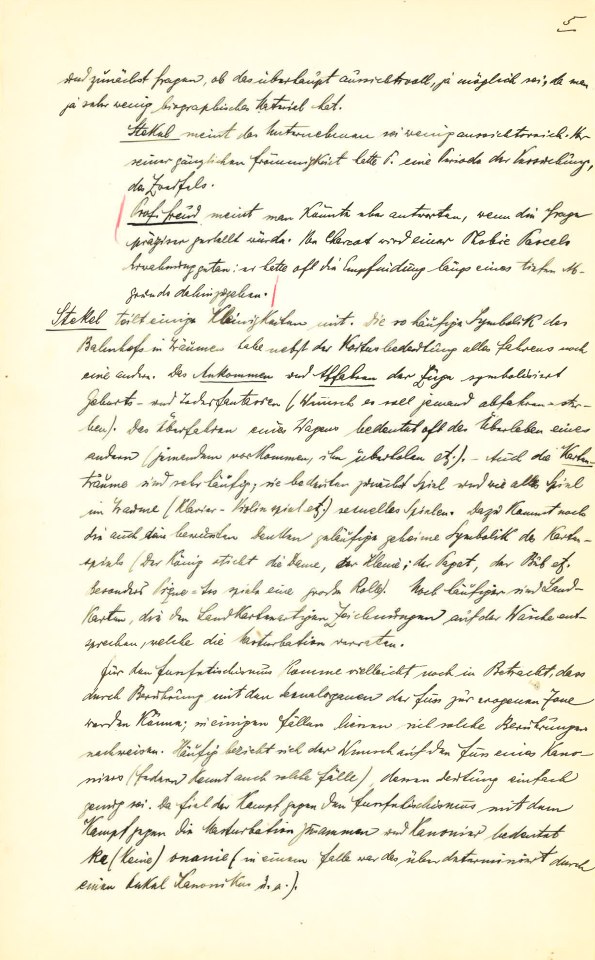 5
und zunächst fragen, ob das überhaupt aussichtsvoll, ja möglich sei, da man
ja sehr wenig biographisches Material hat.
Stekel meint das Unternehmen sei wenig aussichtsreich.
seiner gänglichen Frömmigkeit hatte P. eine Periode der
des Zweifels.
Prof. Freud meint man könnte eher antworten, wenn die Frage
präziser gestellt würde. Von Charcot wird einer Phobie Pascals
Erwähnung getan: er hatte oft die Empfindung längs eines tiefen Ab-
grunds dahinzugehen.
Stekel teilt einige Kleinigkeiten mit. Die so häufige Symbolik des
Bahnhofs in Träumen habe nebst der Koitusbedeutung alles Fahrens noch
eine andere. Das Ankommen und Abfahren der Züge symbolisiert
Geburts- und Todesfantasien (Wunsch es soll jemand abfahren = ster-
ben). Das Überfahren eines Wagens bedeutet oft das Überleben eines
andern (jemandem vorkommen, ihn überholen etz.). – Auch die Karten-
träume sind sehr häufig; sie bedeuten zunächst Spiel und wie alles Spiel
im Traume (Klavier- Violinspiel etz.) sexuelles Spielen. Dazu kommt noch
die auch dem bewussten Denken geläufige geheime Symbolik des Karten-
spiels (Der König sticht die Dame, der Kleine; der Pagat, der Bub etz.
besonders Pique-Ass spiele eine grosse Rolle). Noch häufiger sind Land-
karten, die den landkartenartigen Zeichnungen auf der Wäsche ent-
sprechen, welche die Masturbation verraten.
Für den Fussfetischismus komme vielleicht noch in Betracht, dass
durch Berührung mit den Sexualorganen der Fuss zur erogenen Zone
werden könne; in einigen Fällen liessen sich solche Berührungen
nachweisen. Häufig bezieht sich der Wunsch auf den Fuss eines Kano-
niers (Federn kennt auch solche Fälle), deren Deutung einfach
genug sei. Da fiel der Kampf gegen den Fussfetischismus mit dem
Kampf gegen die Masturbation zusammen und Kanonier bedeutet
ka (keine) onanie (in einem Falle war das überdeterminiert durch
einen Onkel Kanonikus u. a.).